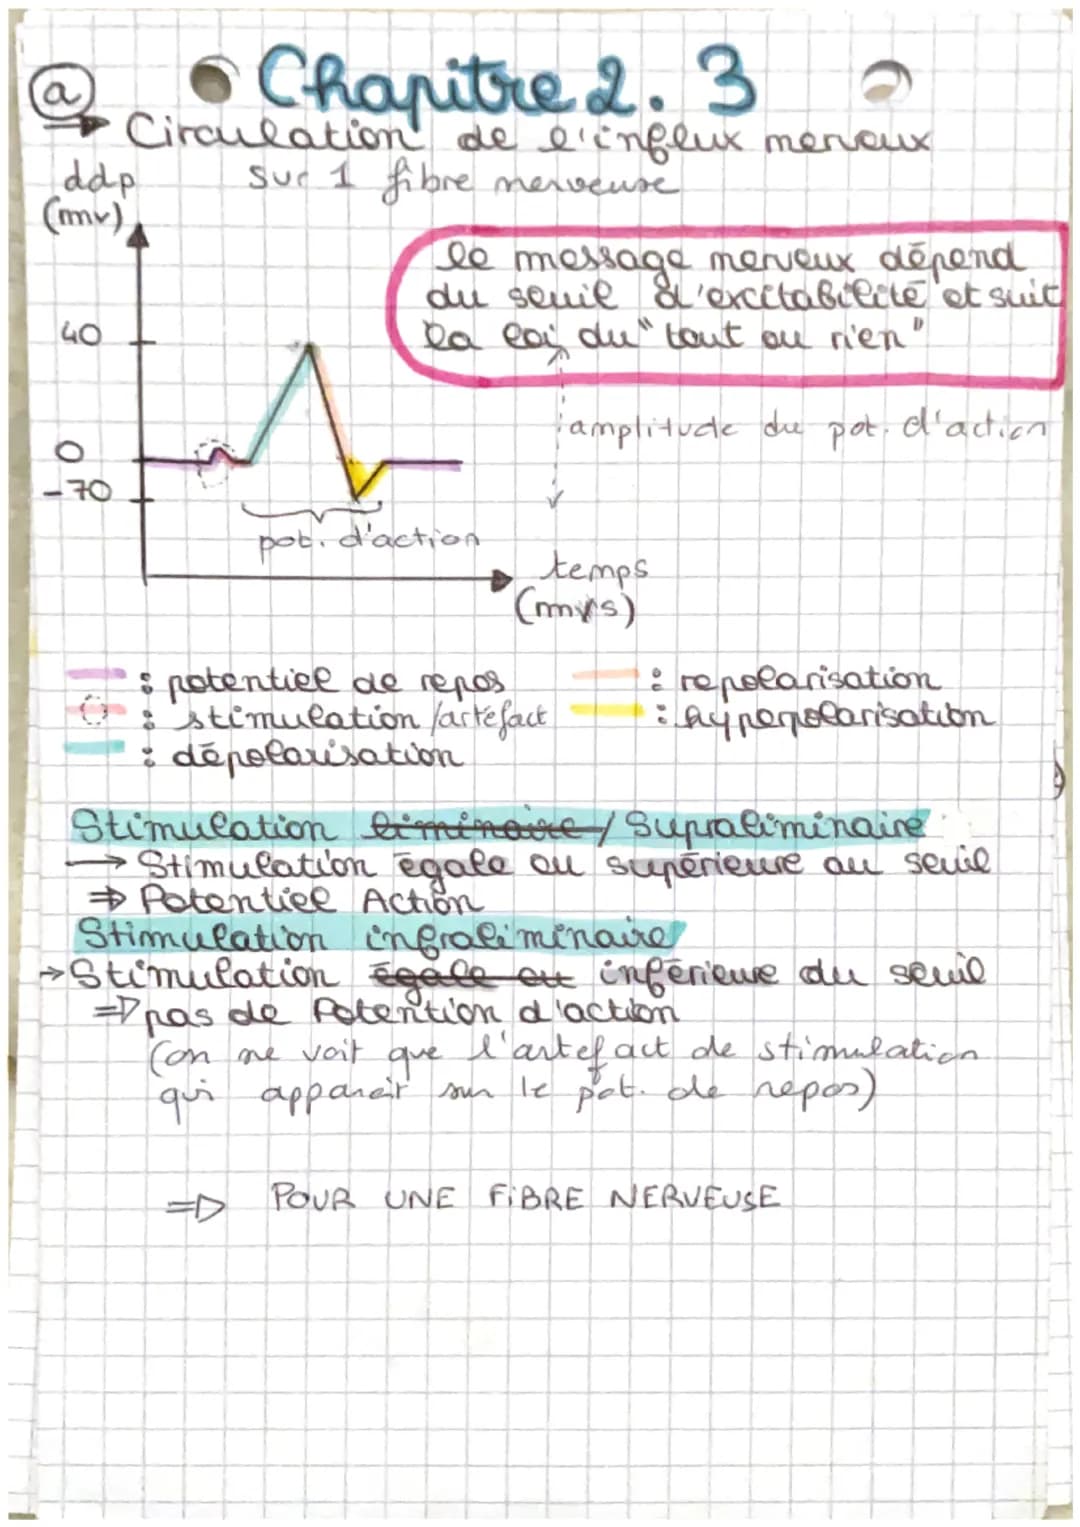 Chapitre 2.3
a
→ Circulation de l'influx nerveux
sur 1 fibre nerveuse
ddp
(mv)
le message nerveux dépend
du seuil d'excitabilité et suit
la loi du "tout ou rien"
40
amplitude du pot. d'action
0
-70
pot. d'action
temps
(ms)
: potentiel de repos
: stimulation /artéfact
: dépolarisation
: repolarisation
: hyperpolarisation
Stimulation liminaire / Supraliminaire
→ Stimulation égale ou supérieure au seuil
⇒ Potentiel Action
Stimulation infraliminaire
→ Stimulation égale ou inférieure du seuil
⇒ pas de Potention d'action
(on ne voit que l'artefact de stimulation
qui apparaît sur le pot. de repos)
⇒ POUR UNE FIBRE NERVEUSE